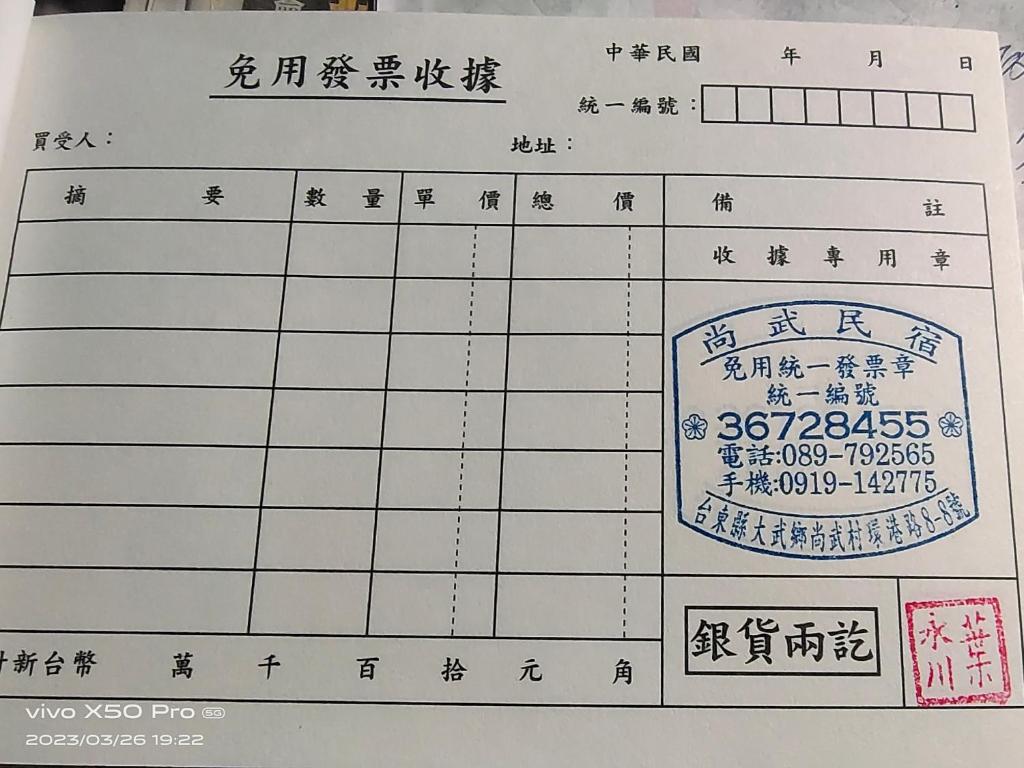 免用發票收據
中華民國 年 月 日
統一編號：
買受人：
地址：
摘要 數量 單價 總價 備註
收據專用章
尚武民宿
免用統一發票章
統一編號
36728455
電話:089-792565
手機:0919-142775
台東縣大武鄉尚武村環港路8-8號
銀貨兩訖
永川
新台幣 萬 千 百 拾 元 角
vivo X50 Pro 5G
2023/03/26 19:22